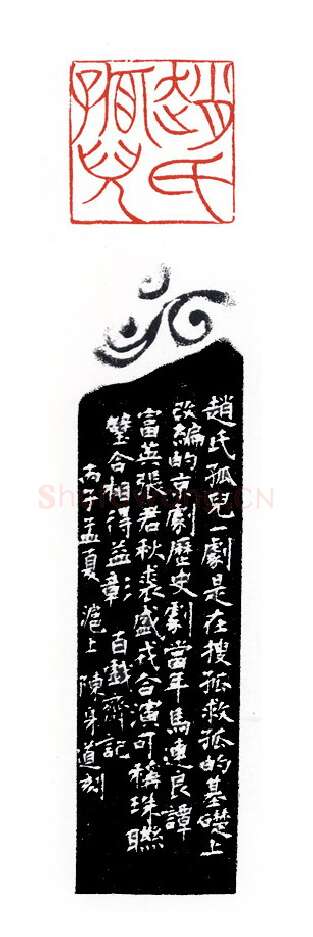 趙氏孤兒
趙氏孤兒一劇是在搜孤救孤的基礎上
改編的京劇歷史劇當年馬連良譚
富英張君秋裘盛戎合演可稱珠聯
璧合相得益彰 百戲齋記
丙子孟夏 滬上 陳身道刻